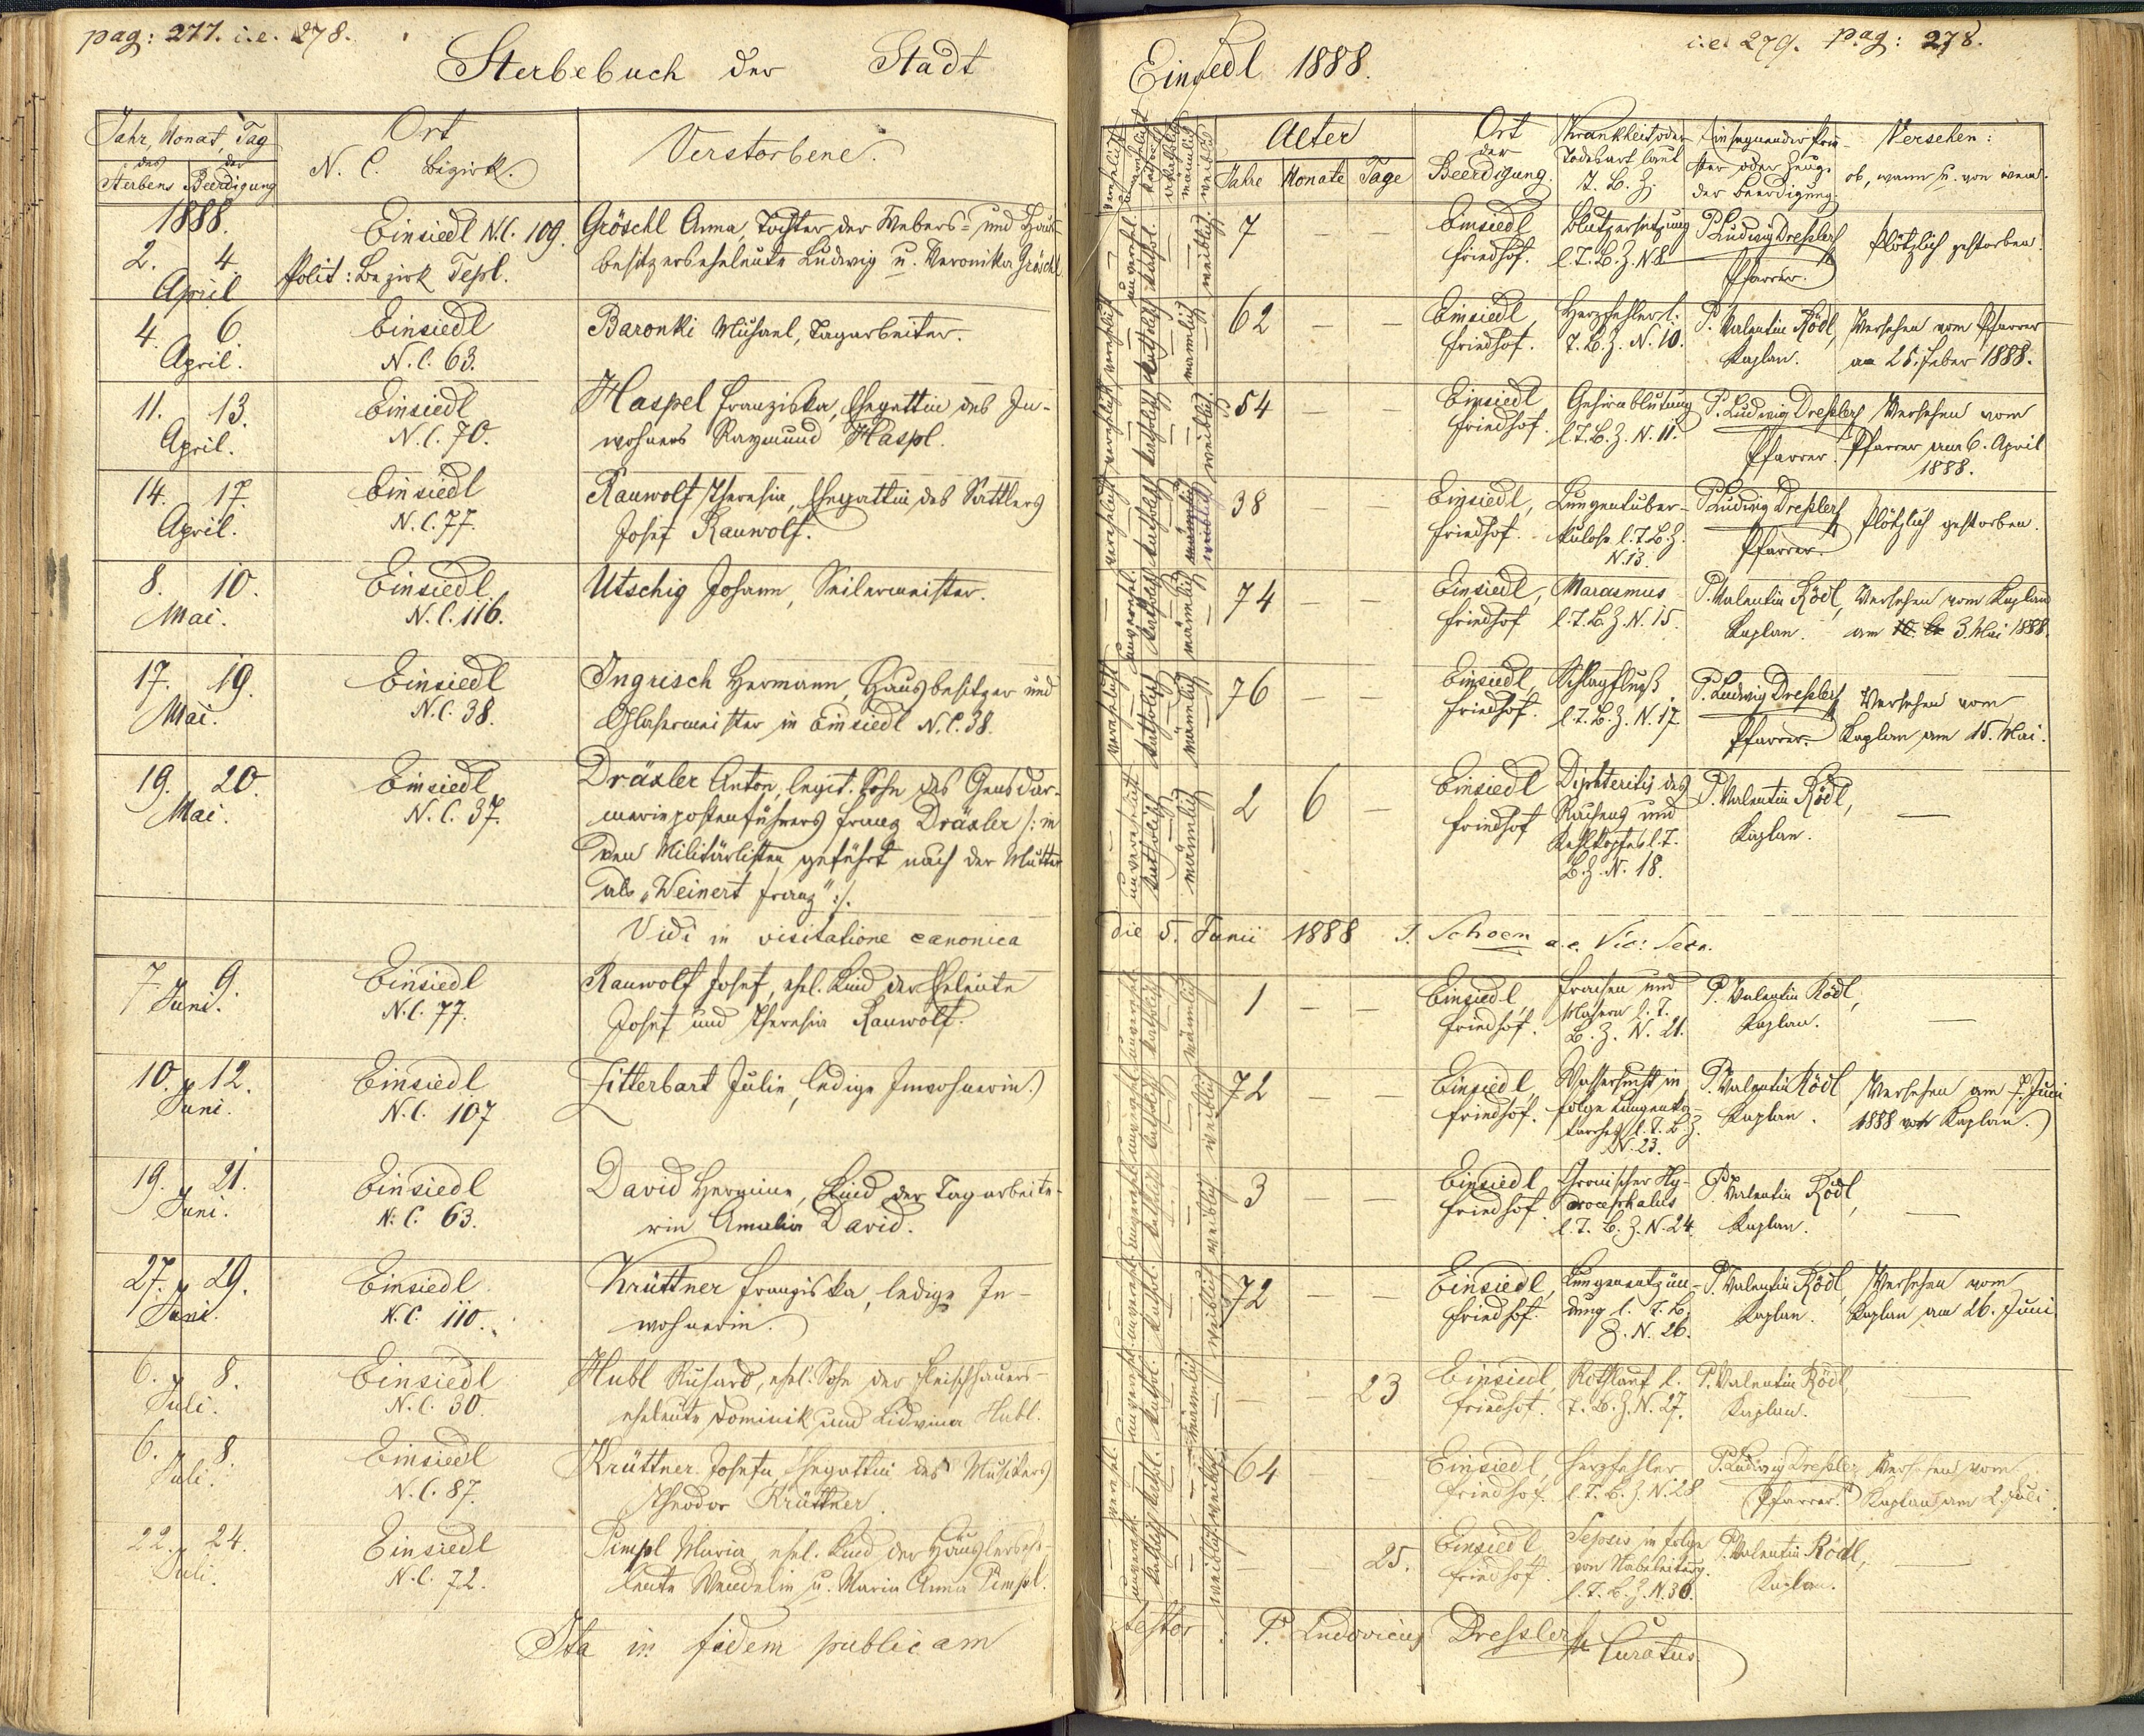 pag: 277. i.e. 278.
Sterbebuch der Stadt
Jahr, Monat, Tag
des Sterbens
der Beerdigung
Ort
N. C. Bezirk.
Verstorbene.
1888.
2. 4.
April
Einsiedl N.C. 109.
Polit: Bezirk Tepl.
Gröschl Anna, Tochter der Webers- und Haus-
besitzerseheleute Ludwig u. Veronika Gröschl.
4. 6.
April.
Einsiedl
N.C. 63.
Baronki Michael, Tagarbeiter.
11. 13.
April.
Einsiedl
N.C. 70.
Haspel Franziska, Ehegattin des In-
wohners Raymund Haspl.
14. 17.
April.
Einsiedl
N.C. 77.
Rauwolf Theresia, Ehegattin des Sattlers
Josef Rauwolf.
8. 10.
Mai.
Einsiedl
N.C. 116.
Utschig Johann, Seilermeister.
17. 19.
Mai.
Einsiedl
N.C. 38.
Ingrisch Hermann, Hausbesitzer und
Glasermeister in Einsiedl N.C. 38.
19. 20.
Mai.
Einsiedl
N.C. 37.
Dräxler Anton, legit. Sohn des Gensdar-
meriepostenführers Franz Dräxler /: in
den Militärlisten geführt nach der Mutter
als „Weinert Franz" :/.
Vidi in visitatione canonica
7. 9.
Juni.
Einsiedl
N.C. 77.
Rauwolf Josef, ehel. Kind der Eheleute
Josef und Theresia Rauwolf.
10. 12.
Juni.
Einsiedl
N.C. 107
Zitterbart Julie, ledige Inwohnerin.
19. 21.
Juni.
Einsiedl
N.C. 63.
David Hermine, Kind der Tagarbeite-
rin Amalia David.
27. 29.
Juni.
Einsiedl
N.C. 110.
Krüttner Franziska, ledige In-
wohnerin.
6. 8.
Juli.
Einsiedl
N.C. 30.
Hubl Richard, ehel. Sohn der Fleischhauers-
eheleute Dominik und Lidwina Hubl.
6. 8.
Juli.
Einsiedl
N.C. 87.
Krüttner Josefa, Ehegattin des Musikers
Theodor Krüttner.
22. 24.
Juli.
Einsiedl
N.C. 72.
Pimpl Maria, ehel. Kind der Häuslersehe-
leute Wendelin u. Maria Anna Pimpl.
Ita in fidem publicam
i.e. 279. pag: 278.
Einsiedl 1888.
Alter
Jahre Monate Tage
Ort
der
Beerdigung.
Krankheit oder
Todesart laut
T. B. Z.
Einsegnender Prie-
ster oder Zeuge
der Beerdigung.
Versehen:
ob, wann u. von wem.
unverehl. kathol. weiblich
7 — —
Einsiedl
Friedhof.
Blutzersetzung
l. T. B. Z. N. 8
P. Ludwig Dressler
Pfarrer.
Plötzlich gestorben.
verehlicht katholisch männlich
62 — —
Einsiedl,
Friedhof.
Herzfehler l.
T. B. Z. N. 10.
P. Valentin Rödl,
Kaplan.
Versehen vom Pfarrer
am 25. Feber 1888.
verehlicht katholisch weiblich
54 —
Einsiedl
Friedhof.
Gehirnblutung
l. T. B. Z. N. 11.
P. Ludwig Dressler
Pfarrer.
Versehen vom
Pfarrer am 6. April
1888.
verehlicht katholisch männlich weiblich
38 — —
Einsiedl,
Friedhof.
Lungentuber-
kulose l. T. B. Z.
N. 13.
P. Ludwig Dressler
Pfarrer.
Plötzlich gestorben.
unverehl. katholisch männlich
74 — —
Einsiedl,
Friedhof
Marasmus
l. T. B. Z. N. 15.
P. Valentin Rödl,
Kaplan.
Versehen vom Kaplan
am 3. Mai 1888.
verehlicht katholisch männlich
76 — —
Einsiedl,
Friedhof.
Schlagfluß
l. T. B. Z. N. 17.
P. Ludwig Dressler
Pfarrer.
Versehen vom
Kaplan am 15. Mai.
unverehlicht katholisch männlich
2 6 —
Einsiedl
Friedhof
Diphteritis des
Rachens und
Kehlkopfes l. T.
B. Z. N. 18.
P. Valentin Rödl,
Kaplan.
—
die 5. Junii 1888 J. Schoen a. e. Vic: Secr.
unverehl. katholisch männlich
1 — —
Einsiedl,
Friedhof.
Fraisen und
Masern l. T.
B. Z. N. 21.
P. Valentin Rödl,
Kaplan.
—
unverehl. katholisch weiblich
72 — —
Einsiedl,
Friedhof.
Wassersucht in
Folge Lungenka-
tarrhes l. T. B. Z.
N. 23.
P. Valentin Rödl
Kaplan.
Versehen am 7. Juni
1888 vom Kaplan.
unverehl. kathol. weiblich
3 — —
Einsiedl
Friedhof.
Chronischer Hy-
drocephalus
l. T. B. Z. N. 24.
P. Valentin Rödl,
Kaplan.
—
unverehl. kathol. weiblich
72 — —
Einsiedl,
Friedhof.
Lungenentzün-
dung l. T. B.
Z. N. 26.
P. Valentin Rödl,
Kaplan.
Versehen vom
Kaplan am 26. Juni
unverehl. kathol. männlich
— — 23
Einsiedl,
Friedhof.
Rothlauf l.
T. B. Z. N. 27.
P. Valentin Rödl
Kaplan.
—
verehl. kathol. weiblich
64 — —
Einsiedl,
Friedhof.
Herzfehler
l. T. B. Z. N. 28
P. Ludwig Dressler
Pfarrer.
Versehen vom
Kaplan am 2. Juli.
unverehl. katholisch weiblich
— — 25.
Einsiedl
Friedhof.
Sepsis in Folge
von Nabeleiterg.
l. T. B. Z. N. 30.
P. Valentin Rödl,
Kaplan.
—
testor. P. Ludovicus Dressler Curatus